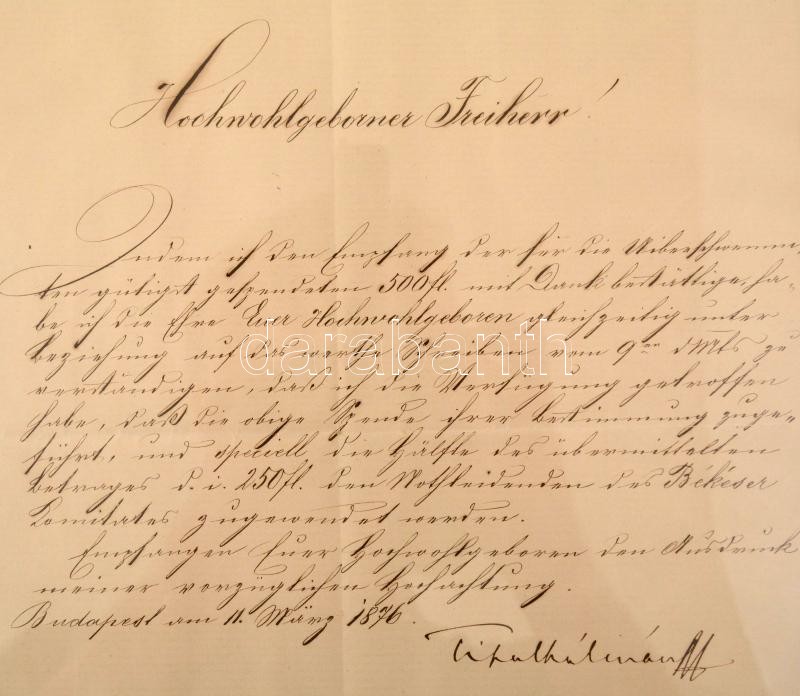 Hochwohlgeborner Freiherr!
Indem ich den Empfang der für die Uiberschwemm-
ten gütigst gespendeten 500 fl. mit Dank bestättige, ha-
be ich die Ehre Euer Hochwohlgeboren gleichzeitig unter
Beziehung auf das werthe Schreiben vom 9ten d Mts zu
verständigen, daß ich die Verfügung getroffen
habe, daß die obige Spende ihrer Bestimmung zuge-
führt, und speciell die Hälfte des übermittelten
Betrages d. i. 250 fl. den Nothleidenden des Békéser
Komitates zugewendet werden.
Empfangen Euer Hochwohlgeboren den Ausdruck
meiner vorzüglichen Hochachtung.
Budapest am 11. März 1876.
Tisza Kálmán
darabanth